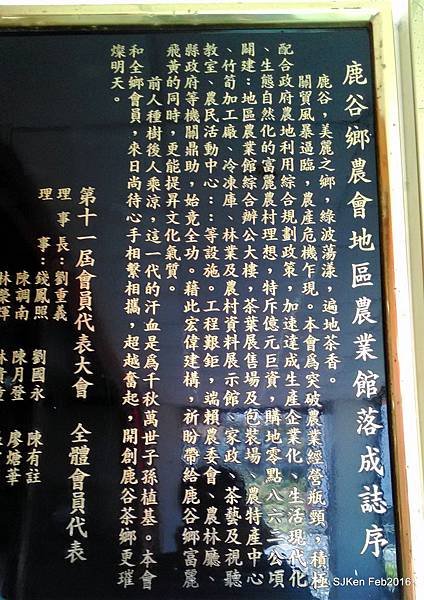 鹿谷鄉農會地區農業館落成誌序
鹿谷，美麗之鄉，綠波蕩漾，遍地茶香。
關貿風暴逼臨，農產危機乍現。本會為突破農業經營瓶頸，積極
配合政府農地利用綜合規劃政策，加速達成生產企業化、生活現代化
、生態自然化的富麗農村理想，特斥億元巨資，購地零點八六三公頃
闢建：地區農業館綜合辦公大樓，茶葉展售場及包裝場、農特產中心
、竹筍加工廠、冷凍庫、林業及農村資料展示館、家政、茶藝及視聽
教室、農民活動中心：：等設施。工程艱鉅，端賴農委會、農林廳、
縣政府等機關鼎助，始竟全功。藉此宏偉建構，祈盼帶給鹿谷鄉富麗
飛黃的同時，更能提昇文化氣質。
前人種樹後人乘涼，這一代的汗血是為千秋萬世子孫植基。本會
和全鄉會員，來日尚待心手相繫相攜，超越奮起，開創鹿谷茶鄉更璀
燦明天。
第十一屆會員代表大會 全體會員代表
理事長：劉重義 劉國永 陳有註
理事：錢鳳照 陳月登 廖塘華
陳調南
林榮輝
SJKen Feb2016